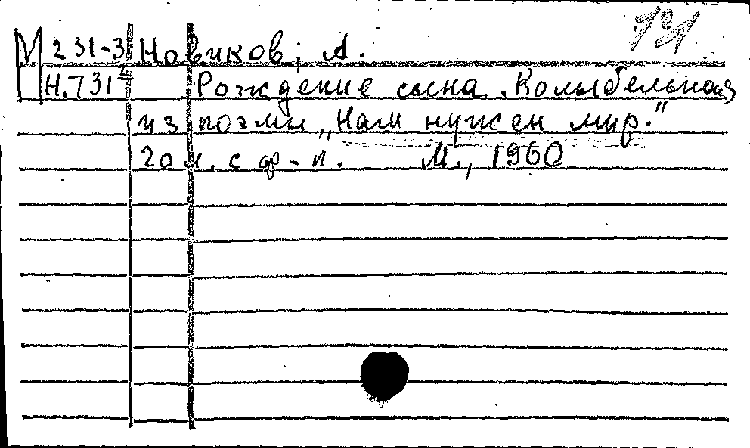 М 231-3 Новиков, А.
Н.731 Рождение сына. Колыбельная
из поэмы „Нам нужен мир."
Гол. с ф-п. М., 1960